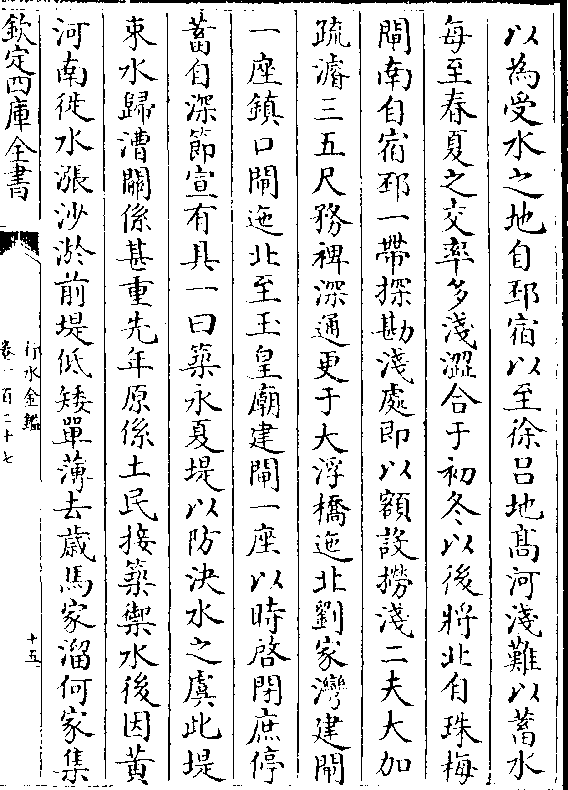 以為受水之地自邳宿以至徐吕地髙河淺難以蓄水
每至春夏之交率多淺澀合于初冬以後將北自珠梅
閘南自宿邳一帶探勘淺處即以額設撈淺二夫大加
疏濬三五尺務裨深通更于大浮橋迤北劉家灣建閘
一座鎮口閘迤北至王皇廟建閘一座以時啓閉庶停
蓄自深節宣有具一曰築永夏堤以防決水之虞此堤
束水歸漕關係甚重先年原係土民接築禦水後因黄
河南徙水漲沙淤前堤低矮單薄去歳馬家溜何家集
欽定四庫全書
行水金鑑
卷一百二十七
十五